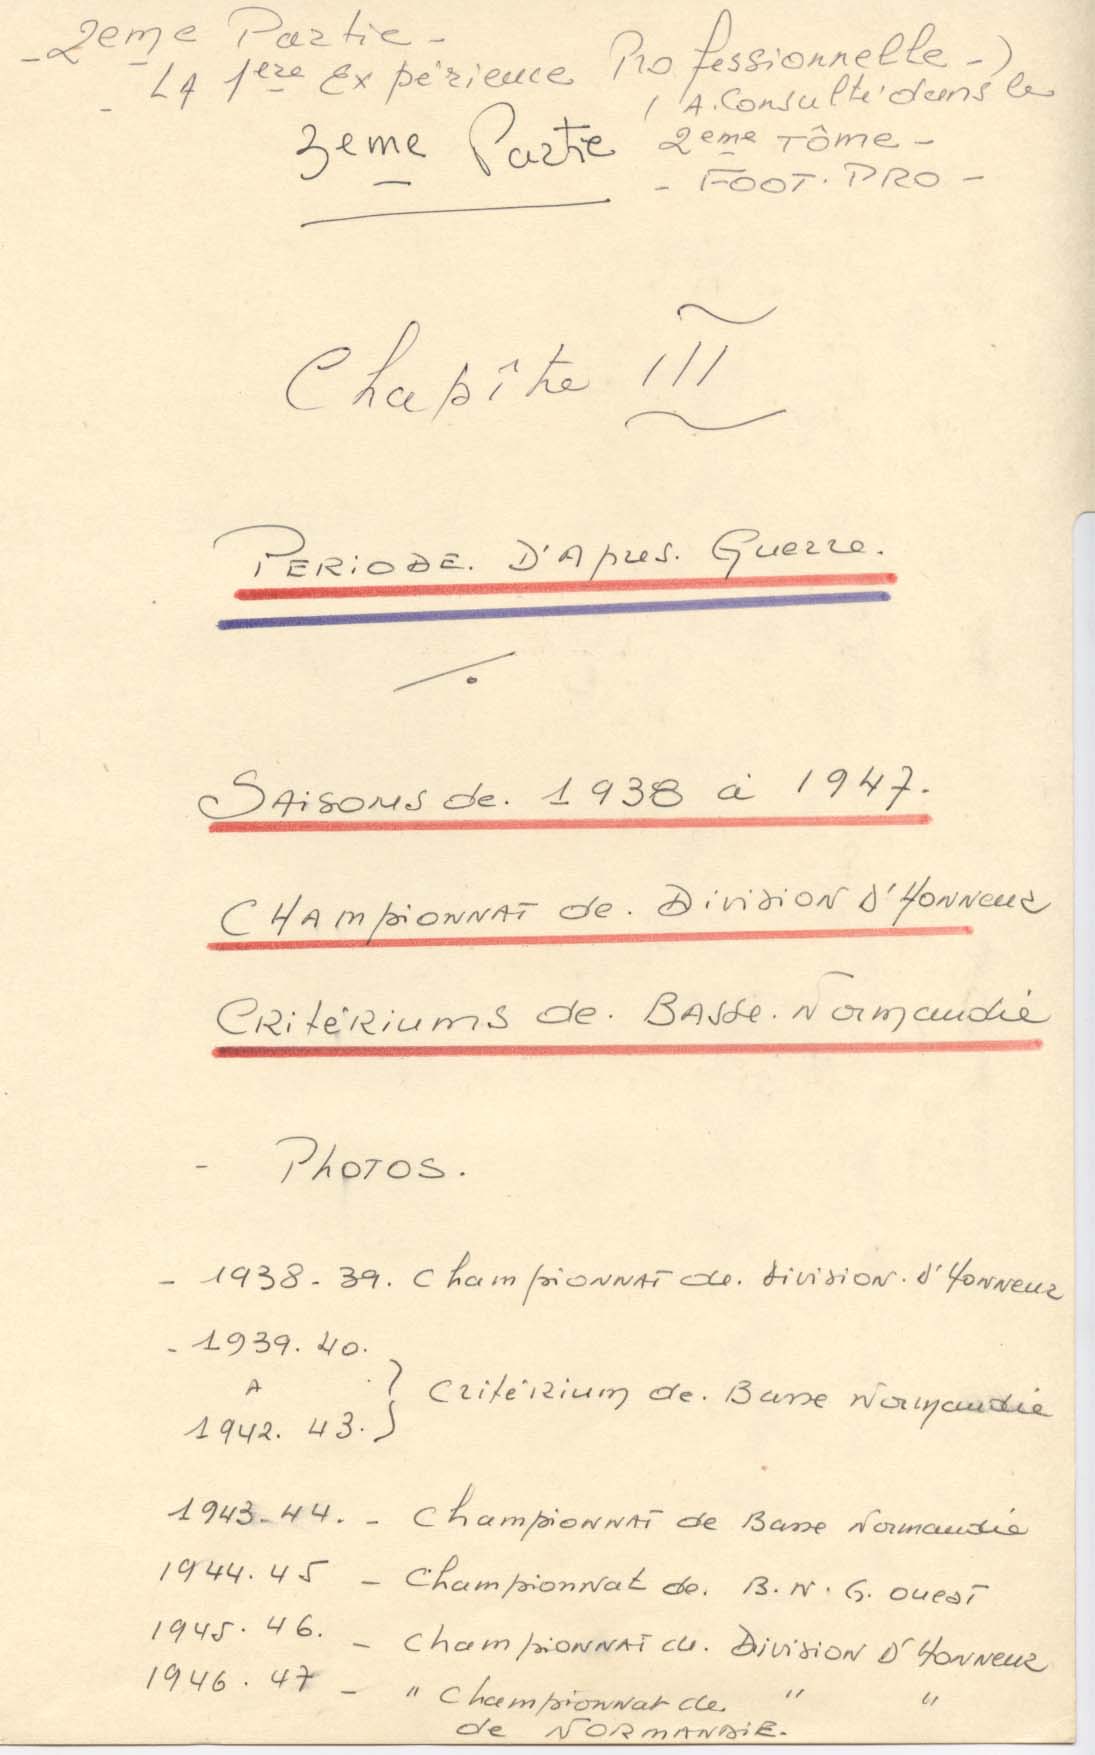 - 2eme Partie -
- LA 1ere Expérience Professionnelle -)
( A. Consulté dans le
3eme Partie
2eme TÔme -
- FOOT. PRO -
Chapître III
PERIODE. D'Apres. Guerre.
SAisons de. 1938 à 1947.
CHAmpiONNAT de. Division D'Honneur
CRitéRiums de. BAsse. Normandie
- PhOTOS.
- 1938-39. ChampiONNAT de. Division. d'Honneur
- 1939.40.
A } Critérium de. Basse Normandie
1942. 43.
1943-44. - ChampiONNAT de Basse Normandie
1944.45 - Championnat de. B.N.G. OuesT
1945.46. - ChampiONNAT de. Division D'Honneur
1946.47 - " Championnat de " "
de NORMANDIE.